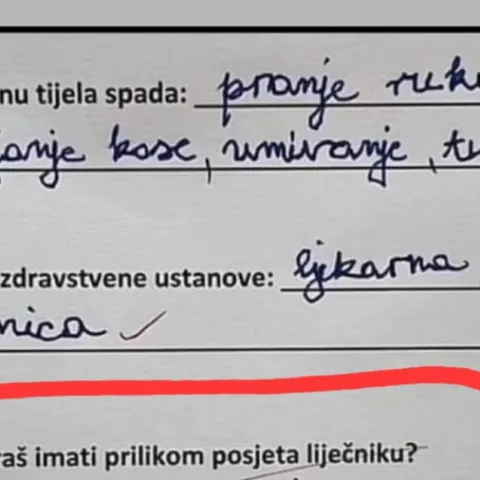 nu tijela spada: pranje ruk
anje kose, umivanje, tu
zdravstvene ustanove: ljekarna
nica
aš imati prilikom posjeta liječniku?